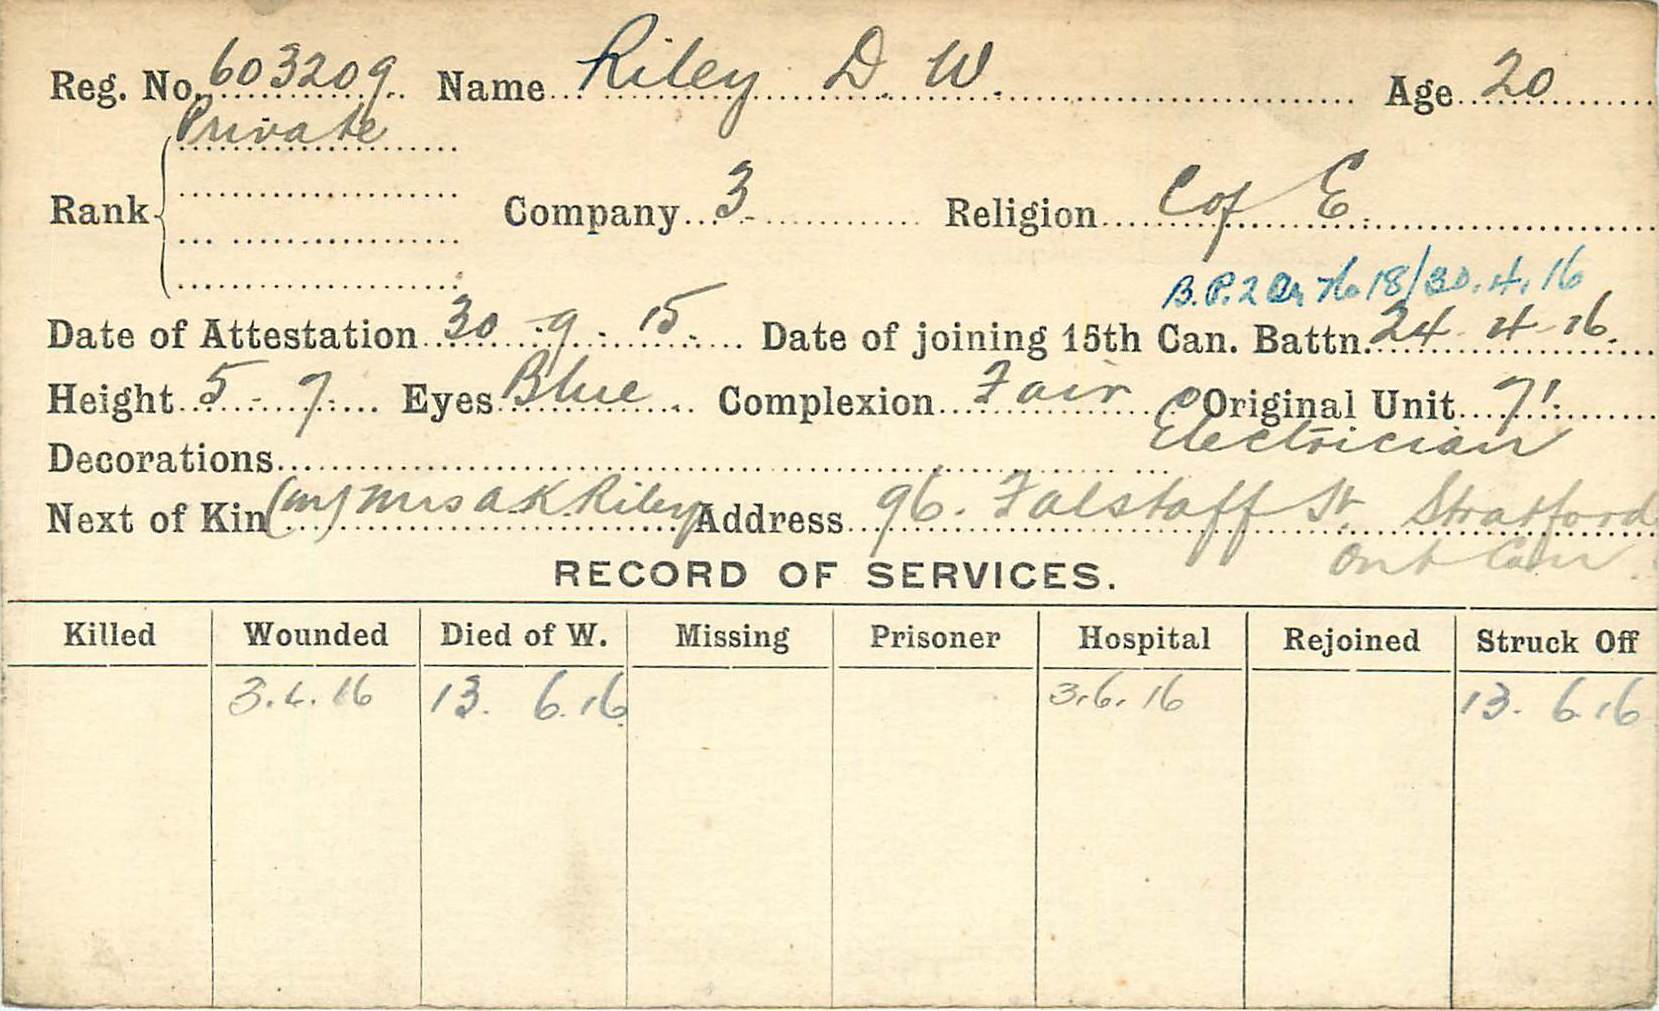 Reg. No. 603209 Name Riley D. W. Age 20
Private
Rank Company 3 Religion C of E.
B.P. 2 No 18/30.4.16
Date of Attestation 30.9.15. Date of joining 15th Can. Battn. 24 4 16.
Height 5 7 Eyes Blue Complexion Fair Original Unit 71
Decorations Electrician
Next of Kin (m) Mrs A K Riley Address 96. Falstaff St. Stratford
Ont Can.
RECORD OF SERVICES.
Killed Wounded Died of W. Missing Prisoner Hospital Rejoined Struck Off
3.6.16 13. 6.16 3.6.16 13. 6.16